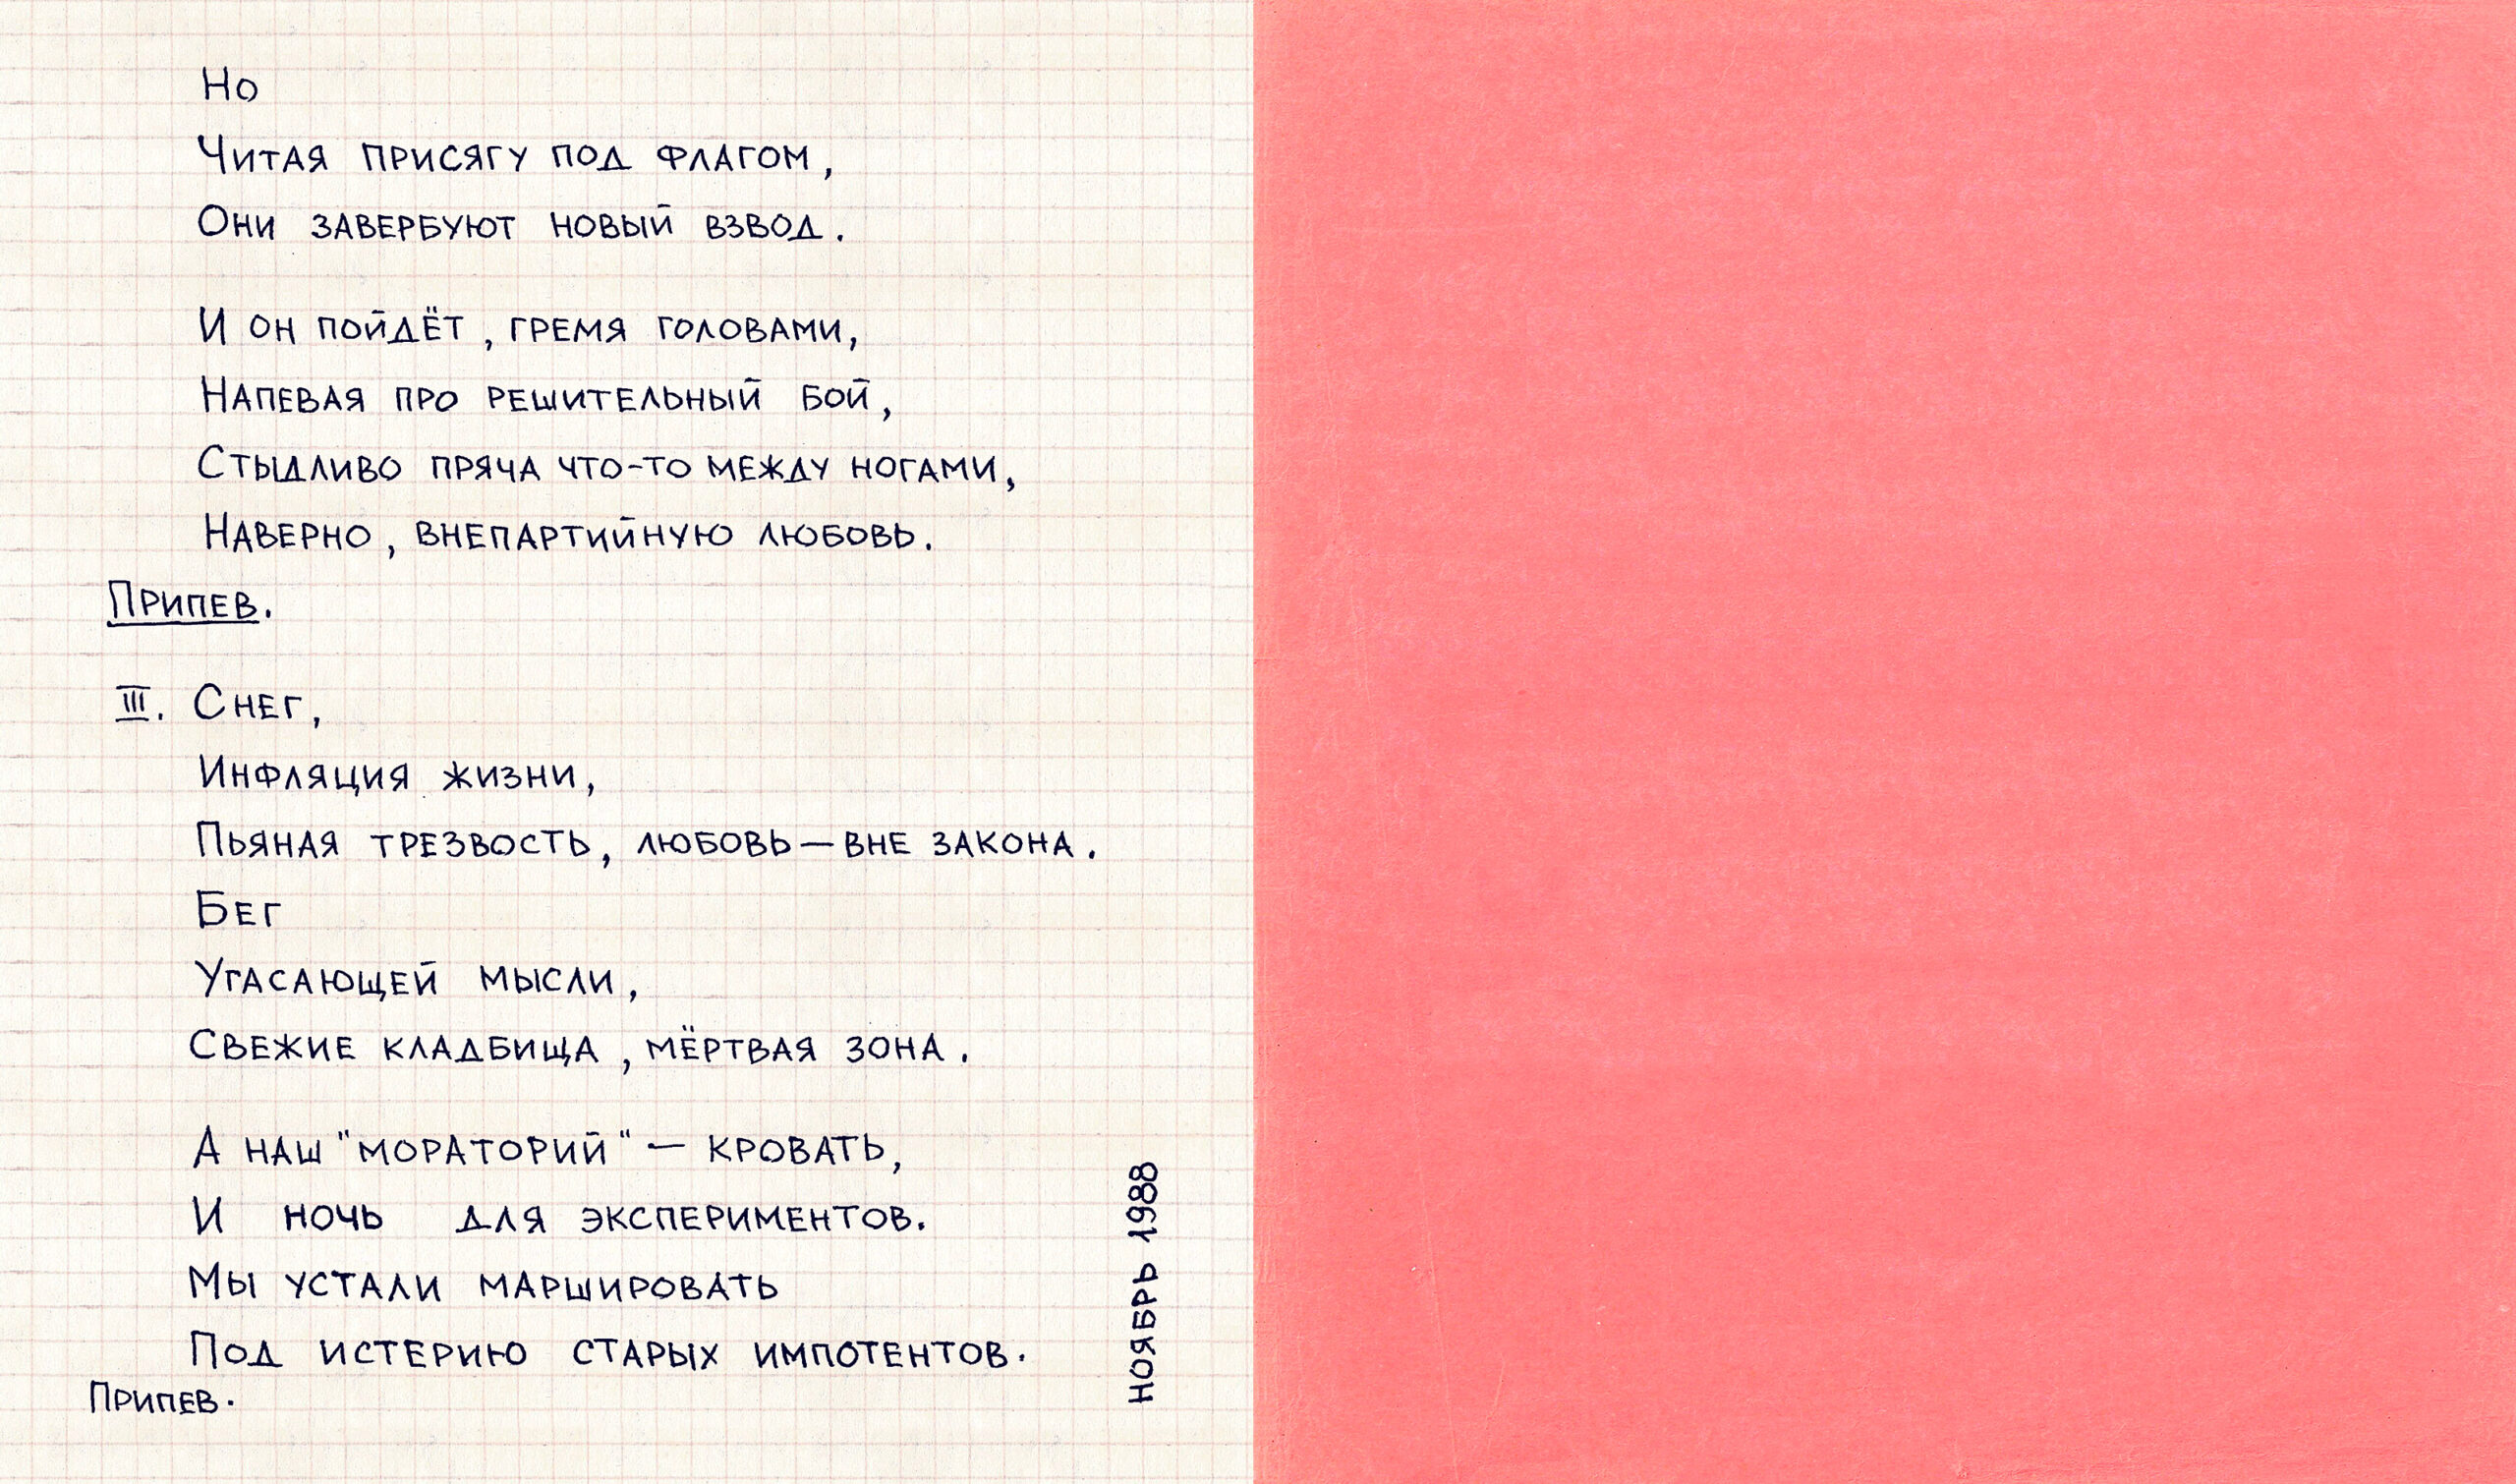 Но
Читая присягу под флагом,
Они завербуют новый взвод.
И он пойдёт, гремя головами,
Напевая про решительный бой,
Стыдливо пряча что-то между ногами,
Наверно, внепартийную любовь.
Припев.
III. Снег,
Инфляция жизни,
Пьяная трезвость, любовь — вне закона.
Бег
Угасающей мысли,
Свежие кладбища, мёртвая зона.
А наш "мораторий" — кровать,
И ночь для экспериментов.
Мы устали маршировать
Под истерию старых импотентов.
Припев.
ноябрь 1988